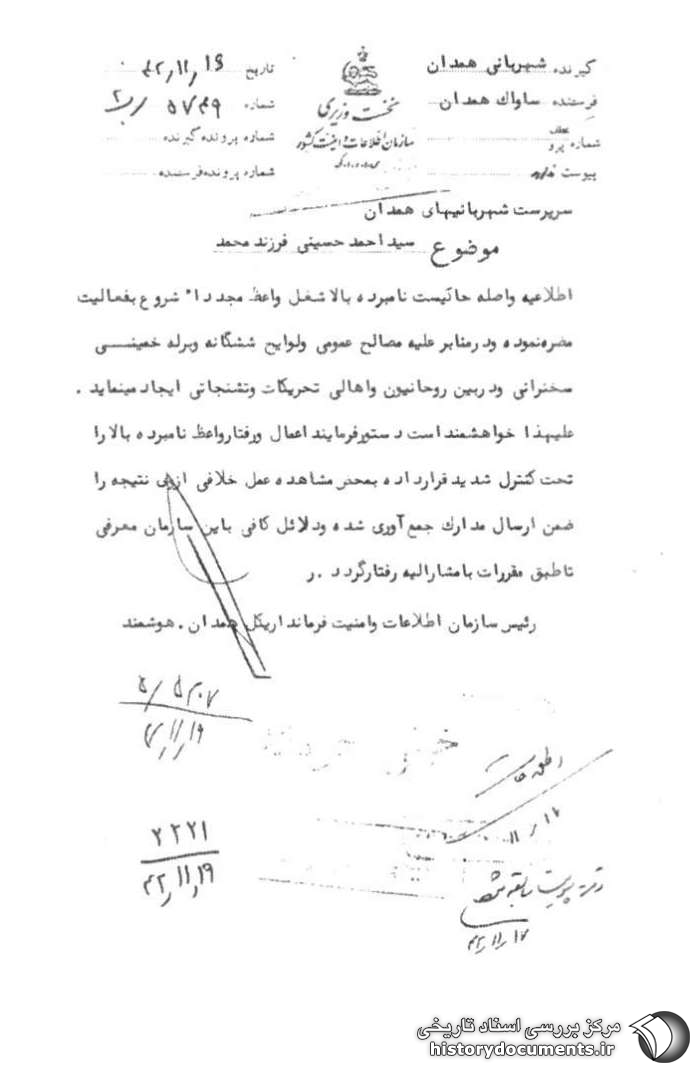 گیرنده شهربانی همدان
تاریخ ۴۲٫۱۱٫۱۶
فرستنده ساواک همدان
نخست وزیری
شماره ۵۷۴۹
سازمان اطلاعات و امنیت کشور
شماره پرونده گیرنده
پیوست ندارد
شماره پرونده فرستنده
سرپرست شهربانیهای همدان
موضوع سید احمد حسینی فرزند محمد
اطلاعیه واصله حاکیست نامبرده بالا شغل واعظ مجدداً شروع بفعالیت
مضره نموده و در منابر علیه مصالح عمومی و لوایح ششگانه و برله خمینی
سخنرانی و در بین روحانیون و اهالی تحریکات و تشنجاتی ایجاد مینماید .
علیهذا خواهشمند است دستور فرمایند اعمال و رفتار واعظ نامبرده بالا را
تحت کنترل شدید قرار داده بمحض مشاهده عمل خلافی از وی نتیجه را
ضمن ارسال مدارک جمع آوری شده و دلائل کافی باین سازمان معرفی
تا طبق مقررات با مشارالیه رفتار گردد . ر
رئیس سازمان اطلاعات و امنیت فرمانداریکل همدان . هوشمند
۲۲۲۱
۴۲٫۱۱٫۱۹
۴۲٫۱۱٫۱۷
مرکز بررسی اسناد تاریخی
historydocuments.ir